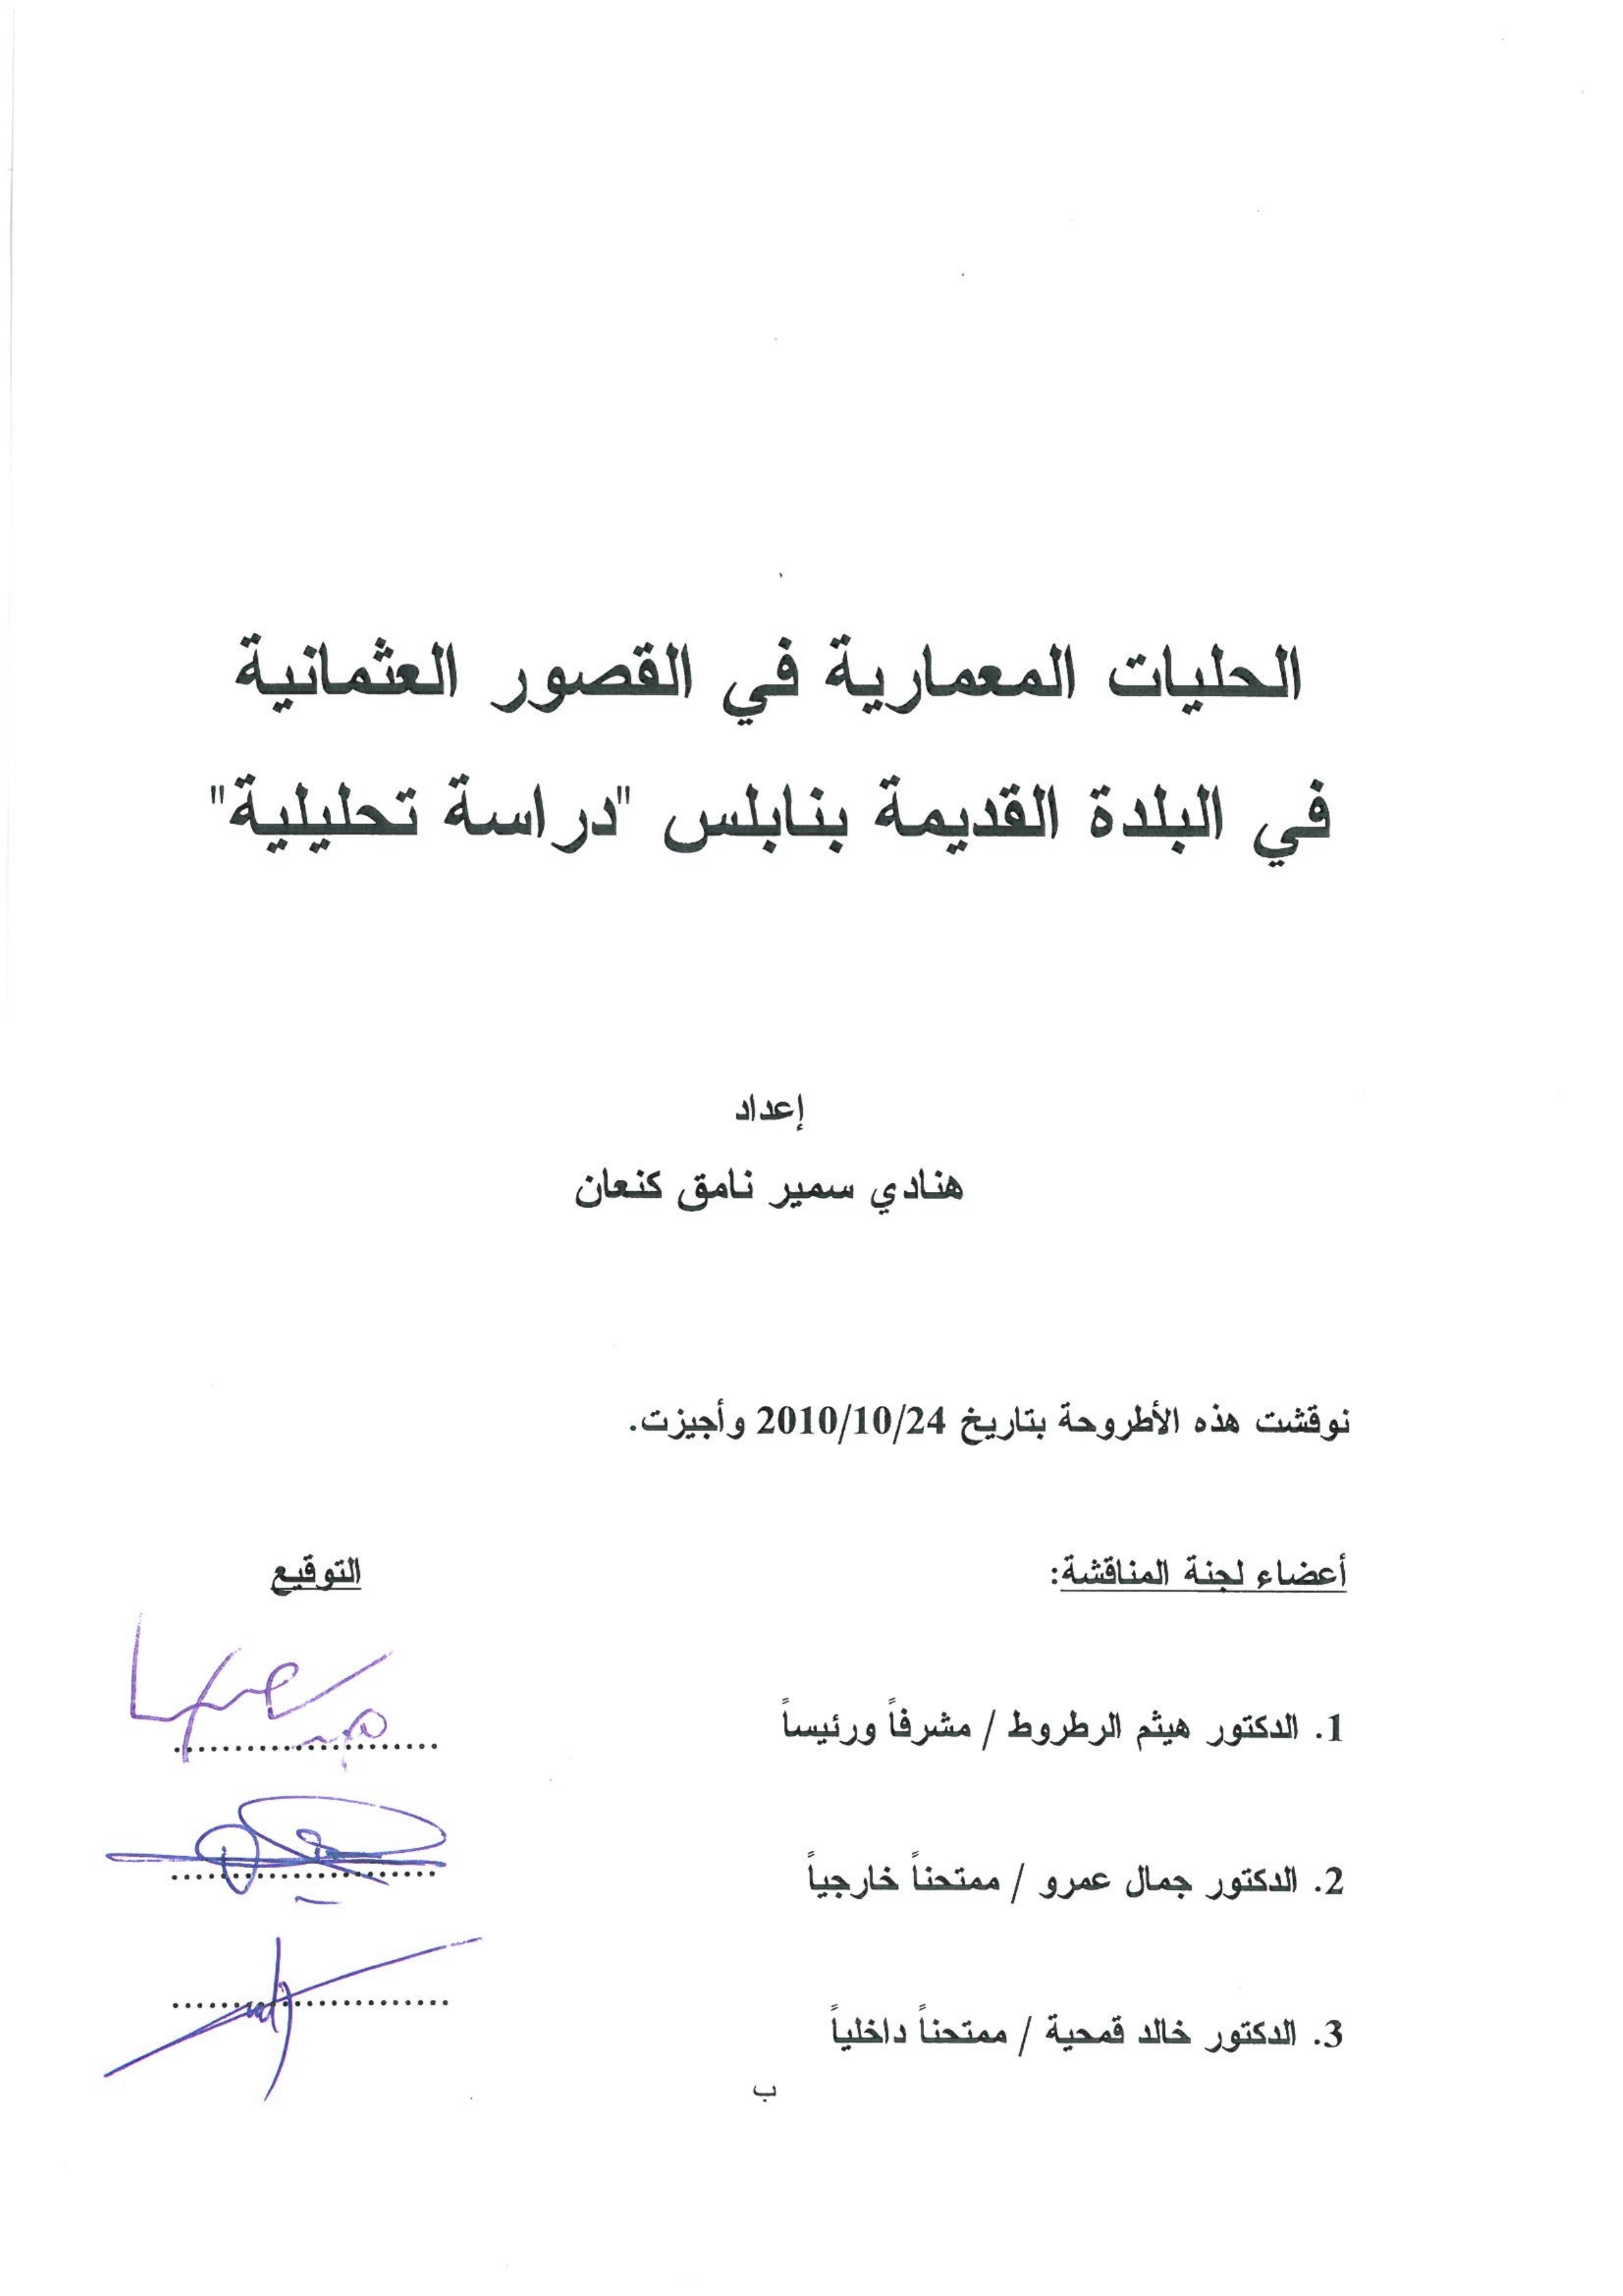 الحليات المعمارية في القصور العثمانية
في البلدة القديمة بنابلس "دراسة تحليلية"
إعداد
هنادي سمير نامق كنعان
نوقشت هذه الأطروحة بتاريخ 2010/10/24 وأجيزت.
أعضاء لجنة المناقشة:
التوقيع
1. الدكتور هيثم الرطروط / مشرفاً ورئيساً
2. الدكتور جمال عمرو / ممتحناً خارجياً
3. الدكتور خالد قمحية / ممتحناً داخلياً
ب